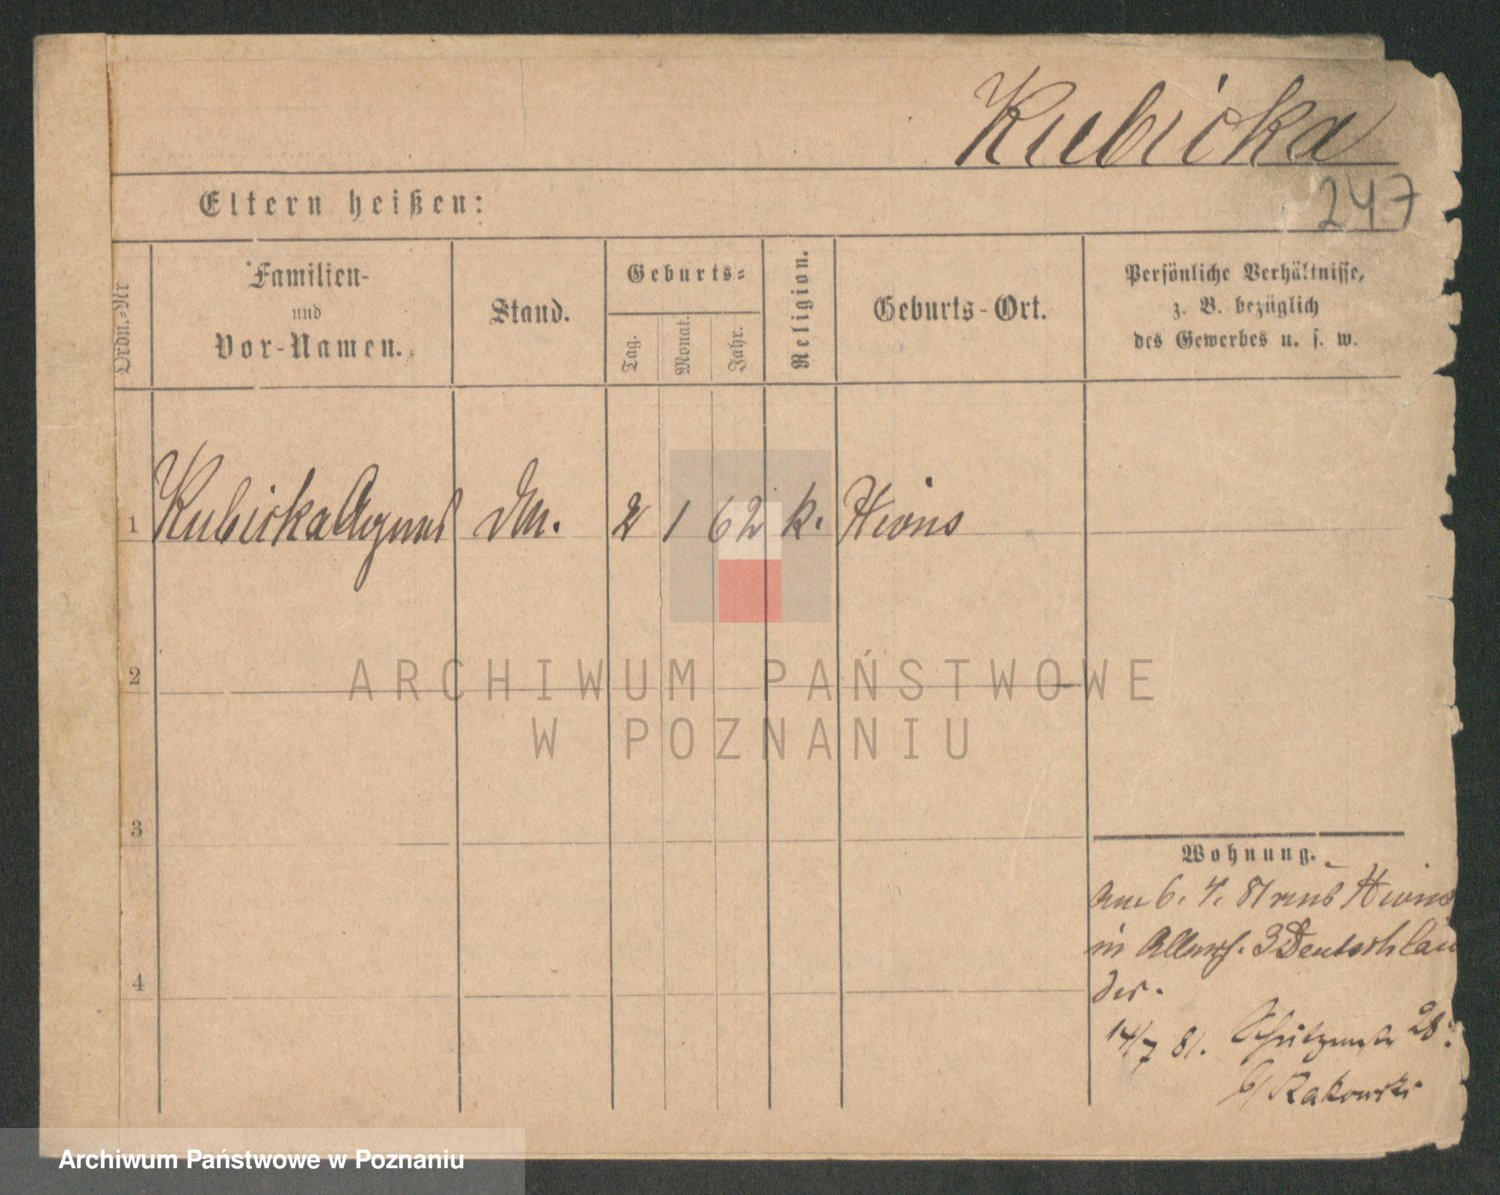 Kubicka
247
Eltern heißen:
Ordn.-Nr
Familien-
und
Vor-Namen.
Stand.
Geburts-
Tag.
Monat.
Jahr.
Religion.
Geburts-Ort.
Persönliche Verhältnisse,
z. B. bezüglich
des Gewerbes u. s. w.
1 Kubicka Agnes 2 1 62 k. Xions
2
ARCHIWUM PAŃSTWOWE
W POZNANIU
3
4
Wohnung.
am 6. 4. 81 aus Xions
in 3
14/7 81. Schützenstr 28
b/ Rakowski
Archiwum Państwowe w Poznaniu